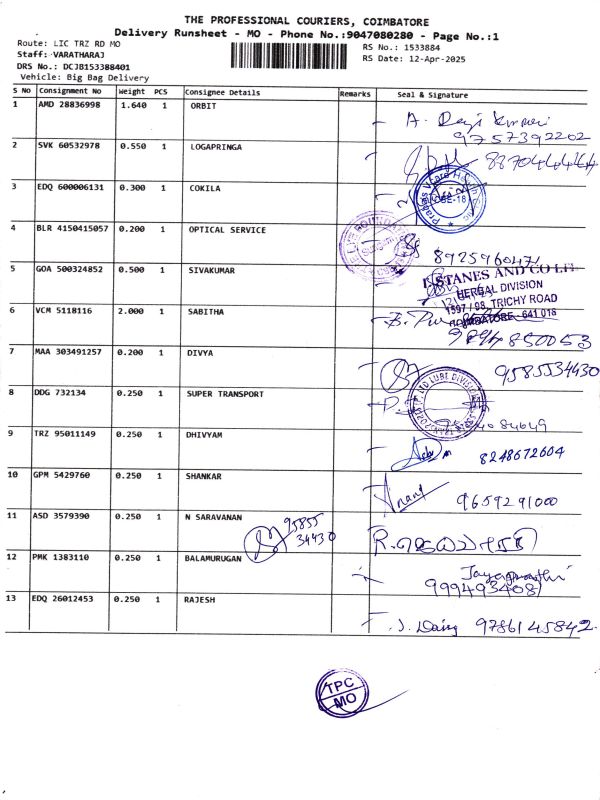 THE PROFESSIONAL COURIERS, COIMBATORE
Delivery Runsheet - MO - Phone No.:9047080280 - Page No.:1
Route: LIC TRZ RD MO
RS No.: 1533884
Staff: VARATHARAJ
RS Date: 12-Apr-2025
DRS No.: DCJB153388401
Vehicle: Big Bag Delivery
S No Consignment No Weight PCS Consignee Details Remarks Seal & Signature
1 AMD 28836998 1.640 1 ORBIT
9757392202
2 SVK 60532978 0.550 1 LOGAPRINGA
3 EDQ 600006131 0.300 1 COKILA
4 BLR 4150415057 0.200 1 OPTICAL SERVICE
8925960471
5 GOA 500324852 0.500 1 SIVAKUMAR
T.STANES AND CO LTD
HERBAL DIVISION
1597 / 98, TRICHY ROAD
COIMBATORE - 641 018
6 VCM 5118116 2.000 1 SABITHA
9894850053
7 MAA 303491257 0.200 1 DIVYA
9585534430
8 DDG 732134 0.250 1 SUPER TRANSPORT
9 TRZ 95011149 0.250 1 DHIVYAM
8248672604
10 GPM 5429760 0.250 1 SHANKAR
Anand 9659291000
11 ASD 3579390 0.250 1 N SARAVANAN
95855
34430
12 PMK 1383110 0.250 1 BALAMURUGAN
9994934087
13 EDQ 26012453 0.250 1 RAJESH
J. Daisy 9786145842
TPC
MO